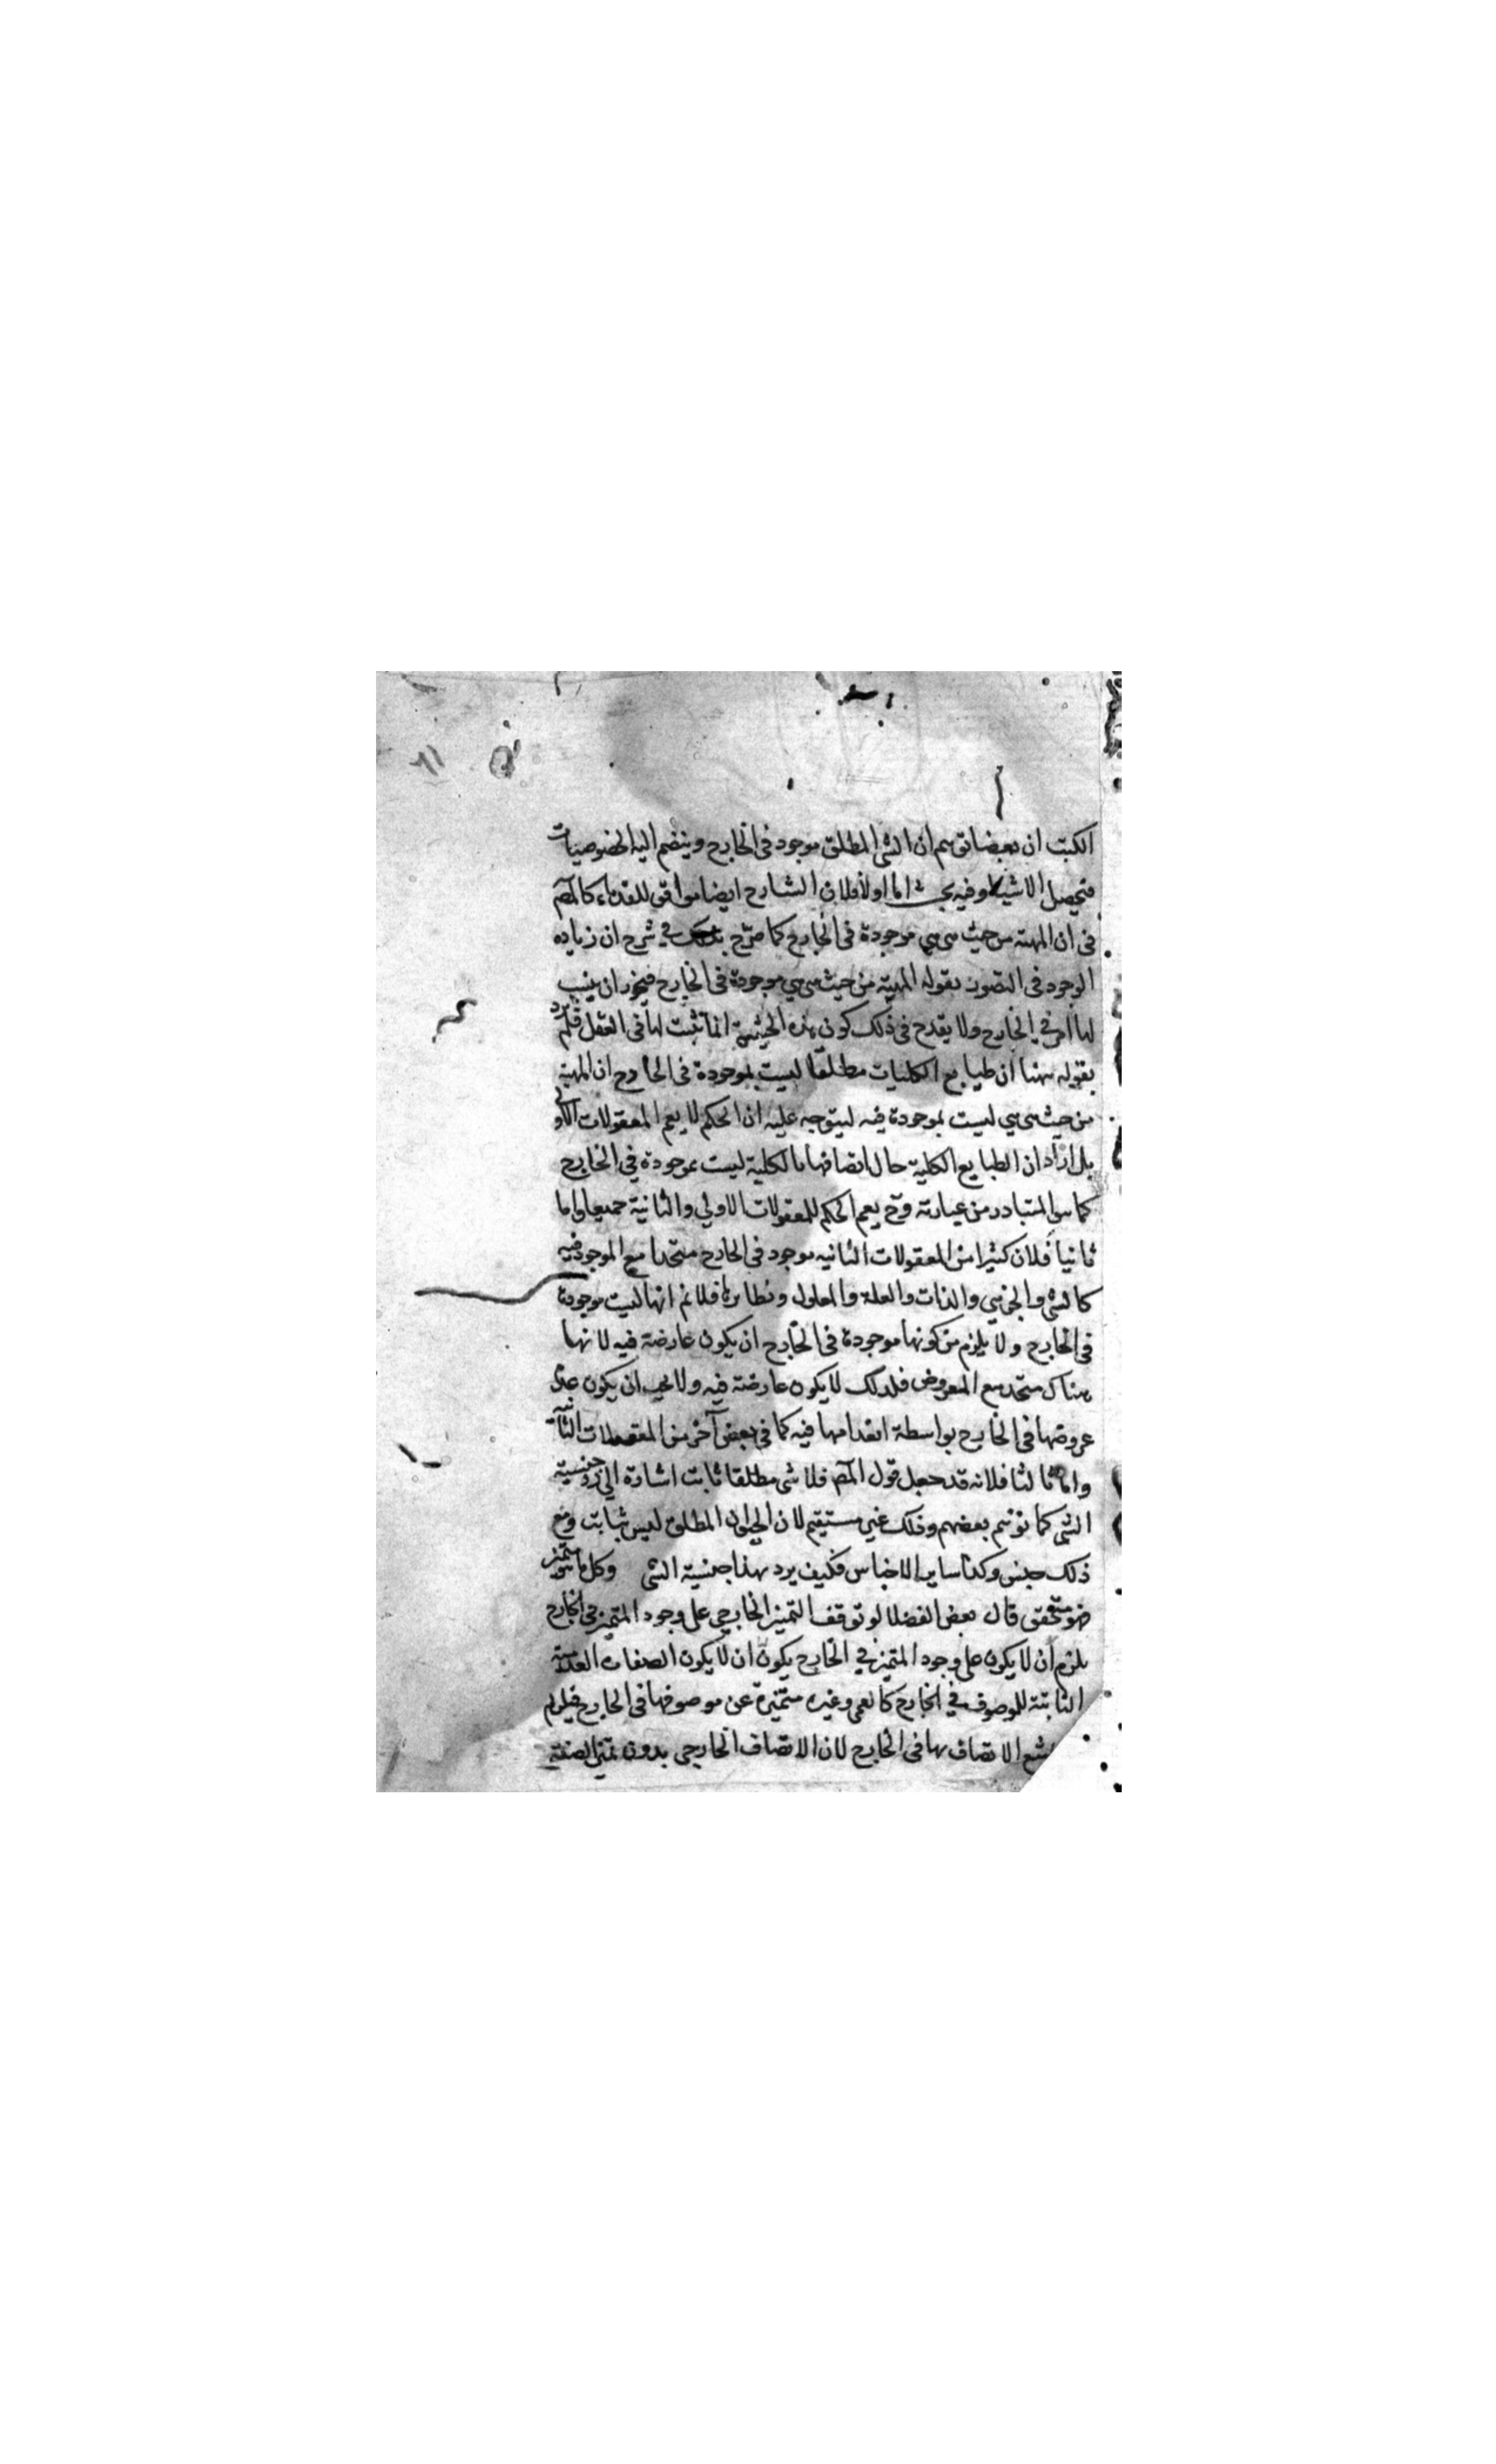 الكتب ان بعضا توهم ان الشي المطلق موجود في الخارج وينضم اليه الخصوصيات
فتحصل الاشياء وفيه بحث اما اولا فلان الشارح ايضا موافق للقدماء كالمص
في ان المهية من حيث هي هي موجودة في الخارج كما صرح بذلك في شرح ان زياده
الوجود في التصور بقوله المهية من حيث هي هي موجودة في الخارج فيجوز ان ينسب
لها امر في الخارج ولا يقدح في ذلك كون هذه الحيثية انما تثبت لها في العقل فلم يرد
بقوله ههنا ان طبايع الكليات مطلقا ليست بموجودة في الخارج ان المهية
من حيث هي هي ليست بموجودة فيه ليتوجه عليه ان الحكم لا يعم المعقولات الاولى
بل اراد ان الطبايع الكلية حال اتصافها بالكلية ليست بموجودة في الخارج
كما هو المتبادر من عبارته وح يعم الحكم للمعقولات الاولي والثانية جميعا واما
ثانيا فلان كثيرا من المعقولات الثانيه موجود في الخارج متحدا مع الموجود فيه
كالشي والجزئي والذات والعلة والمعلول ونظايرها فلا نم انها ليست موجودة
في الخارج ولا يلزم من كونها موجودة في الخارج ان يكون عارضة فيه لانها
هناك متحد مع المعروض فلذلك لا يكون عارضة فيه ولا يجب ان يكون عدم
عروضها في الخارج بواسطة انعدامها فيه كما في بعض آخر من المعقولات الثانية
واما ثالثا فلانه قد جعل قول المص فلا شي مطلقا ثابت اشارة الي رد جنسية
الشي كما توهم بعضهم وذلك غير مستقيم لان الحيوان المطلق ليس بثابت ومع
ذلك جنس وكذا ساير الاجناس فكيف يرد بهذا جنسية الشي وكل ما هو متميز
فهو متحقق قال بعض الفضلا لو توقف التميز الخارجي على وجود المتميز في الخارج
يلزم ان لا يكون على وجود المتميز في الخارج يكون ان لا يكون الصفات العدمية
الثابتة للموصوف في الخارج كالعمى وغيره متميزة عن موصوفها في الخارج فيلزم
الاتصاف بها في الخارج لان الاتصاف الخارجي بدون تميز الصفة